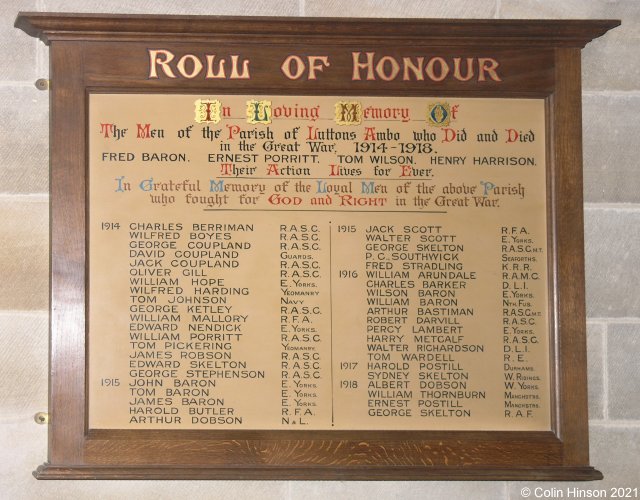 ROLL OF HONOUR
In Loving Memory Of
The Men of the Parish of Luttons Ambo who Did and Died
in the Great War. 1914-1918.
FRED BARON. ERNEST PORRITT. TOM WILSON. HENRY HARRISON.
Their Action Lives for Ever.
In Grateful Memory of the Loyal Men of the above Parish
who fought for GOD and RIGHT in the Great War.
1914 CHARLES BERRIMAN R.A.S.C.
WILFRED BOYES R.A.S.C.
GEORGE COUPLAND R.A.S.C.
DAVID COUPLAND GUARDS.
JACK COUPLAND R.A.S.C.
OLIVER GILL R.A.S.C.
WILLIAM HOPE E. YORKS.
WILFRED HARDING YEOMANRY
TOM JOHNSON NAVY
GEORGE KETLEY R.A.S.C.
WILLIAM MALLORY R.F.A.
EDWARD NENDICK E. YORKS.
WILLIAM PORRITT R.A.S.C.
TOM PICKERING YEOMANRY.
JAMES ROBSON R.A.S.C.
EDWARD SKELTON R.A.S.C.
GEORGE STEPHENSON R.A.S.C.
1915 JOHN BARON E. YORKS.
TOM BARON E. YORKS.
JAMES BARON E. YORKS.
HAROLD BUTLER R.F.A.
ARTHUR DOBSON N & L.
1915 JACK SCOTT R.F.A.
WALTER SCOTT E. YORKS.
GEORGE SKELTON R.A.S.C. M.T.
P. C. SOUTHWICK SEAFORTHS.
FRED STRADLING K.R.R.
1916 WILLIAM ARUNDALE R.A.M.C.
CHARLES BARKER D.L.I.
WILSON BARON E. YORKS.
WILLIAM BARON NTH. FUS.
ARTHUR BASTIMAN R.A.S.C. M.T.
ROBERT DARVILL R.A.S.C.
PERCY LAMBERT E. YORKS.
HARRY METCALF R.A.S.C.
WALTER RICHARDSON D.L.I.
TOM WARDELL R.E.
1917 HAROLD POSTILL DURHAMS.
SYDNEY SKELTON W. RIDINGS.
1918 ALBERT DOBSON W. YORKS.
WILLIAM THORNBURN MANCHSTRS.
ERNEST POSTILL MANCHSTRS.
GEORGE SKELTON R.A.F.
© Colin Hinson 2021